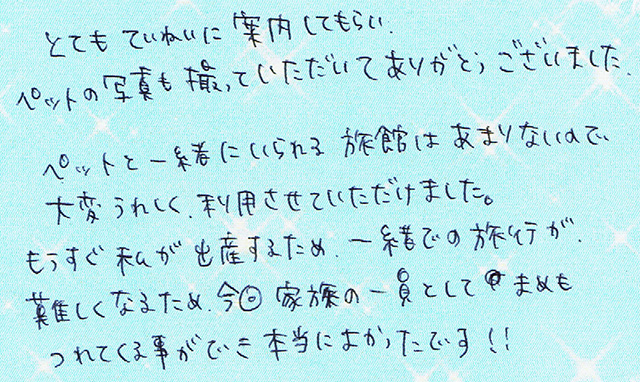 とても ていねいに 案内してもらい、
ペットの写真も撮っていただいてありがとうございました。
ペットと一緒にいられる旅館はあまりないので、
大変うれしく、利用させていただけました。
もうすぐ私が出産するため、一緒での旅行が、
難しくなるため、今回 家族の一員として まめも
つれてくる事ができ本当によかったです!!